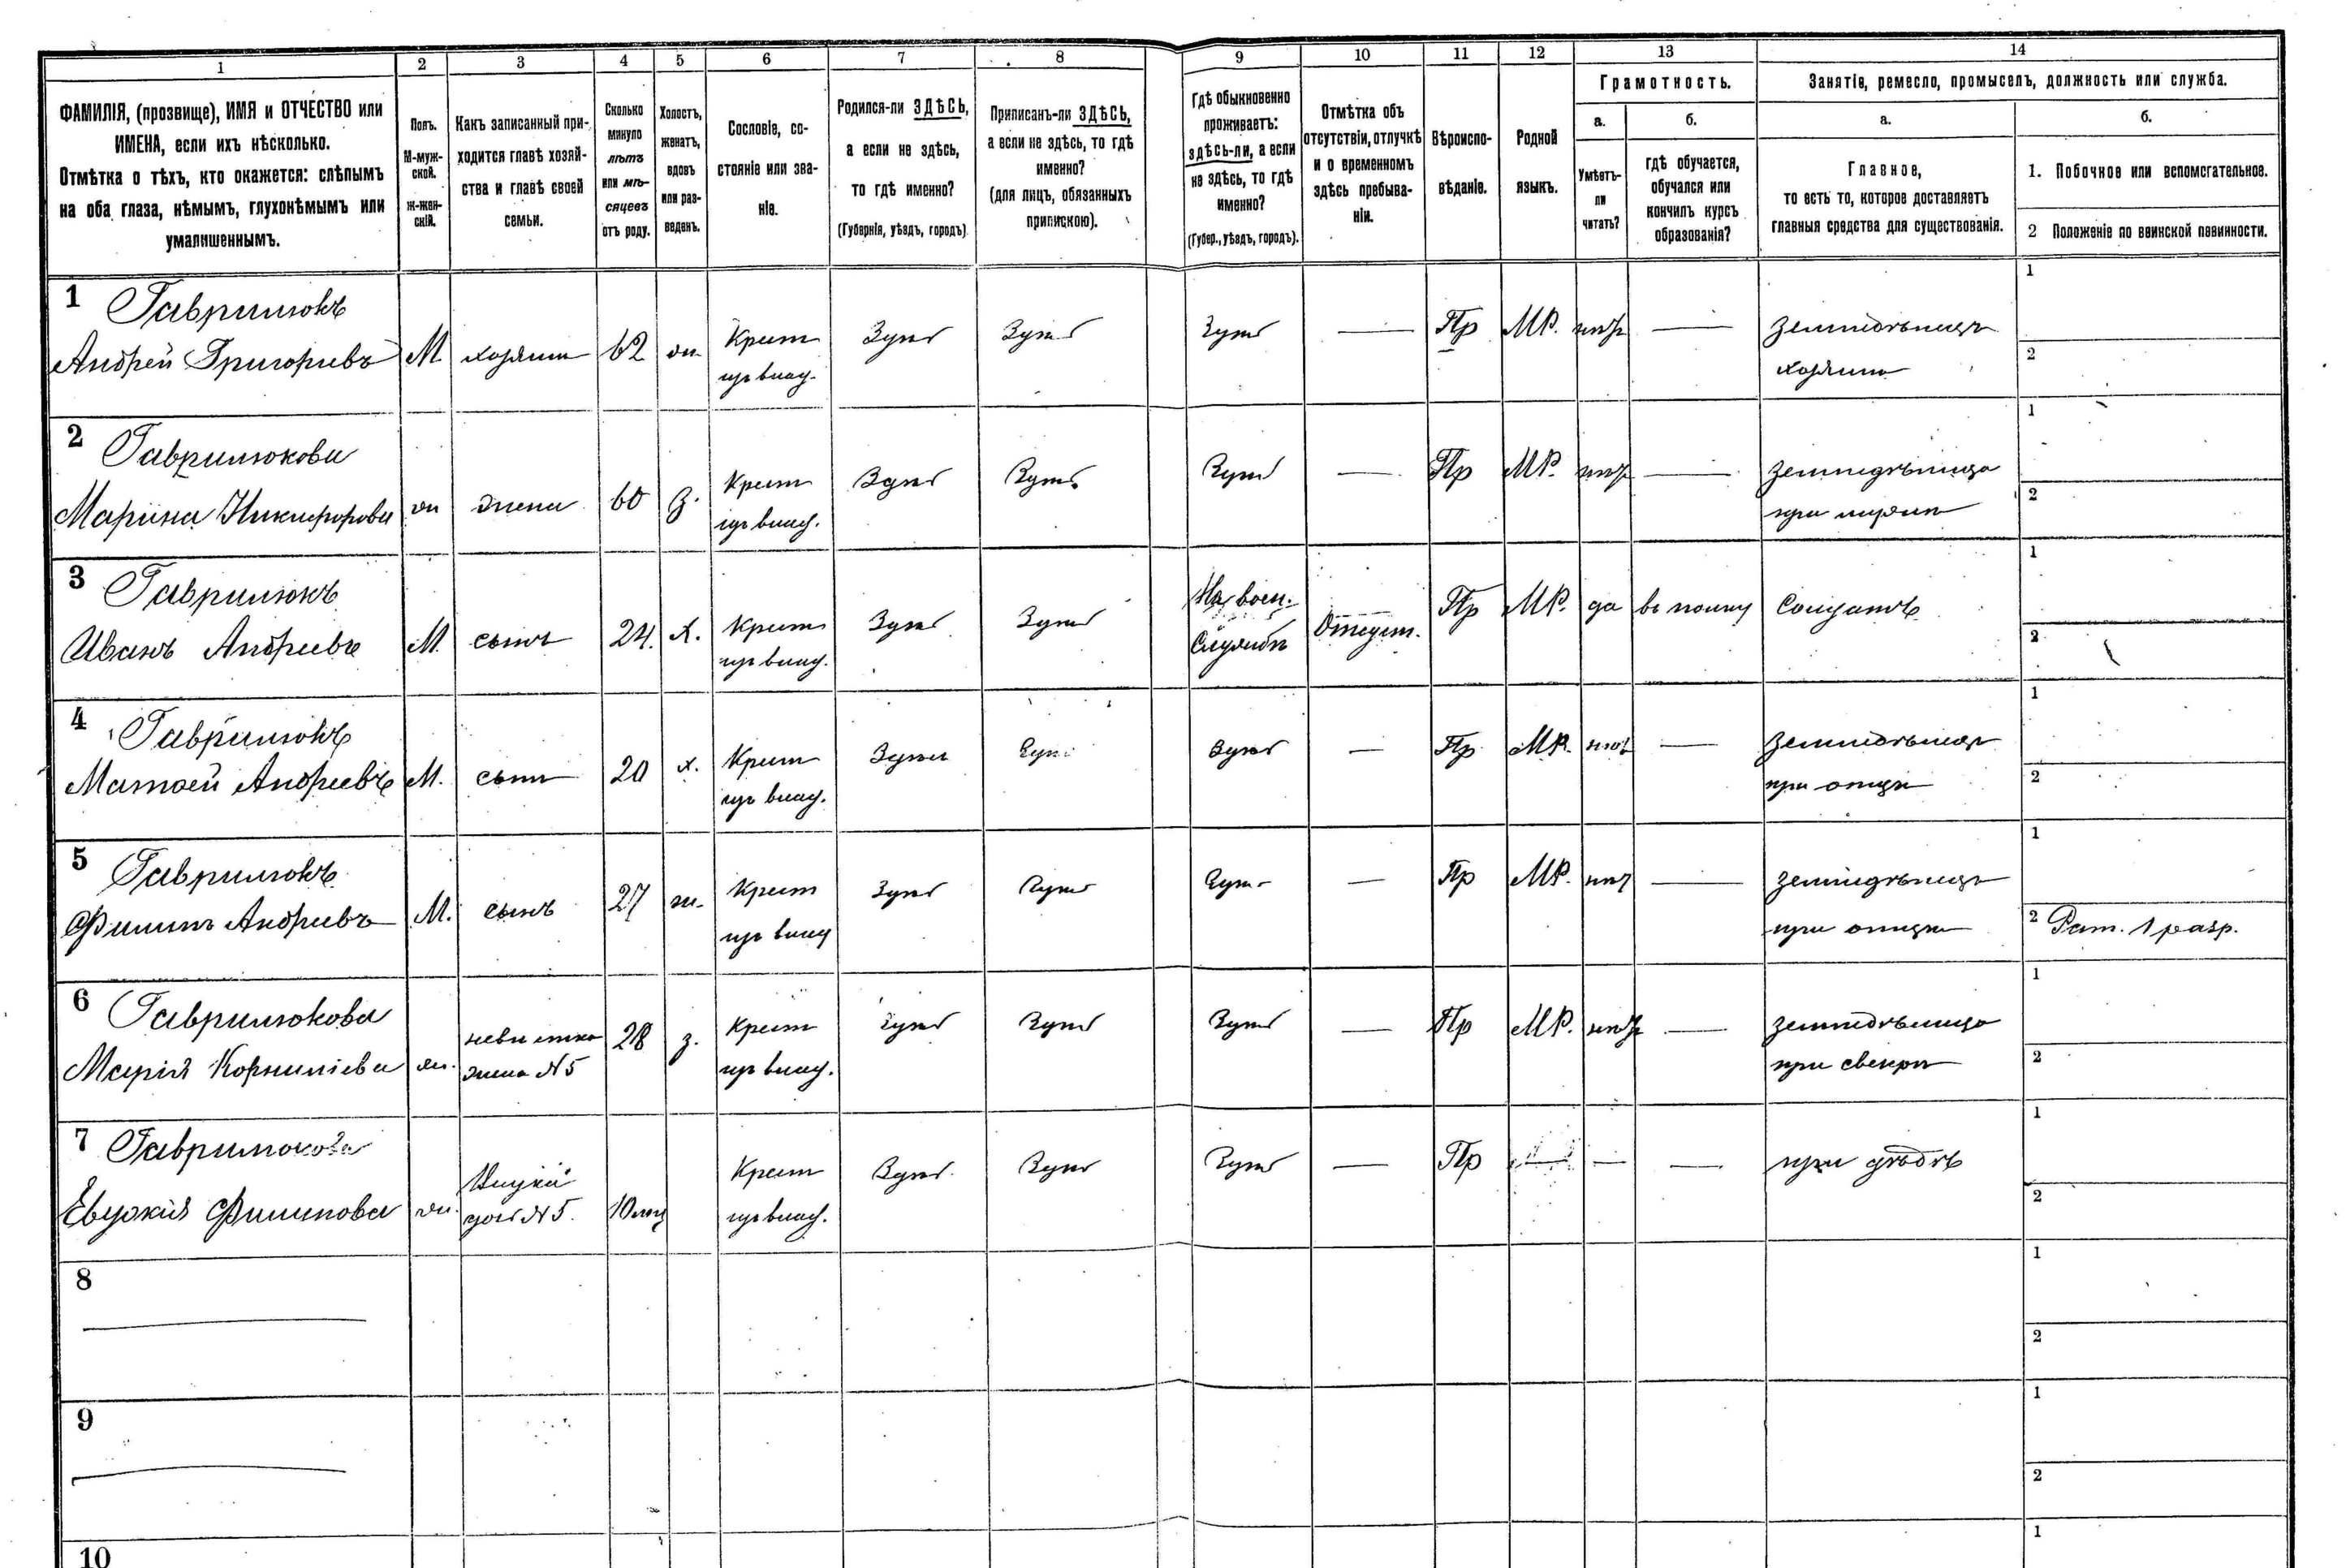 1 2 3 4 5 6 7 8 9 10 11 12 13 14
ФАМИЛІЯ, (прозвище), ИМЯ и ОТЧЕСТВО или
ИМЕНА, если ихъ нѣсколько.
Отмѣтка о тѣхъ, кто окажется: слѣпымъ
на оба глаза, нѣмымъ, глухонѣмымъ или
умалишеннымъ.
Полъ.
М-муж-
ской.
ж-жен-
скій.
Какъ записанный при-
ходится главѣ хозяй-
ства и главѣ своей
семьи.
Сколько
минуло
лѣтъ
или мѣ-
сяцевъ
отъ роду.
Холостъ,
женатъ,
вдовъ
или раз-
веденъ.
Сословіе, со-
стояніе или зва-
ніе.
Родился-ли ЗДѢСЬ,
а если не здѣсь,
то гдѣ именно?
(Губернія, уѣздъ, городъ)
Приписанъ-ли ЗДѢСЬ,
а если не здѣсь, то гдѣ
именно?
(для лицъ, обязанныхъ
припискою).
Гдѣ обыкновенно
проживаетъ:
здѣсь-ли, а если
не здѣсь, то гдѣ
именно?
(Губер., уѣздъ, городъ).
Отмѣтка объ
отсутствіи, отлучкѣ
и о временномъ
здѣсь пребыва-
ніи.
Вѣроиспо-
вѣданіе.
Родной
языкъ.
Грамотность.
а.
Умѣетъ-
ли
читать?
б.
гдѣ обучается,
обучался или
кончилъ курсъ
образованія?
Занятіе, ремесло, промыселъ, должность или служба.
а.
Главное,
то есть то, которое доставляетъ
главныя средства для существованія.
б.
1. Побочное или вспомогательное.
2 Положеніе по воинской повинности.
1 Гаврилюкъ
Андрей Григорьевъ М хозяинъ 62 ж. Крест Здѣсь Здѣсь Здѣсь — Пр МР. нѣтъ — земледѣлецъ 1
изъ влад. хозяинъ 2
2 Гаврилюкова
Марина Никифорова ж жена 60 з. Крест Здѣсь Здѣсь Здѣсь — Пр МР. нѣтъ — земледѣлица 1
изъ влад. при мужѣ 2
3 Гаврилюкъ
Иванъ Андреевъ М. сынъ 24. х. Крест Здѣсь Здѣсь На воен. Отсут. Пр МР. да въ полку Солдатъ 1
изъ влад. Службѣ 2
4 Гаврилюкъ
Матвей Андреевъ М. сынъ 20 х. Крест Здѣсь Здѣсь Здѣсь — Пр МР. нѣтъ — земледѣлецъ 1
изъ влад. при отцѣ 2
5 Гаврилюкъ
Филипъ Андреевъ М. сынъ 27 ж. Крест Здѣсь Здѣсь Здѣсь — Пр МР. нѣтъ — земледѣлецъ 1
изъ влад при отцѣ 2 Рат. 1 разр.
6 Гаврилюкова
Марія Корниліева ж. невѣстка 28 з. Крест Здѣсь Здѣсь Здѣсь — Пр МР. нѣтъ — земледѣлица 1
жена N5 изъ влад. при свекрѣ 2
7 Гаврилюкова
Евдокія Филипова ж. Внучка 10 мѣс Крест Здѣсь. Здѣсь Здѣсь — Пр — — — при дѣдѣ 1
дочь N5. изъ влад. 2
8 1
2
9 1
2
10 1